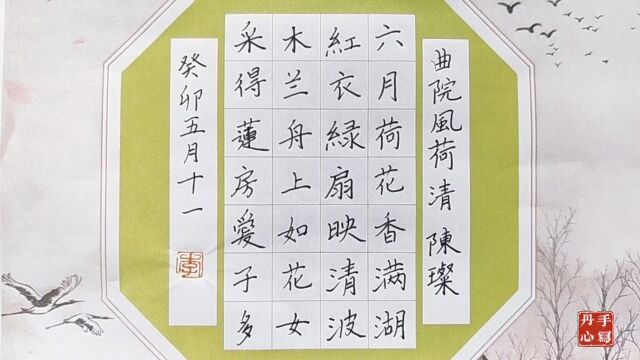 曲院風荷 清 陳璨
六月荷花香满湖
紅衣緑扇映清波
木兰舟上如花女
采得蓮房愛子多
癸卯五月十一
李
手寫
丹心